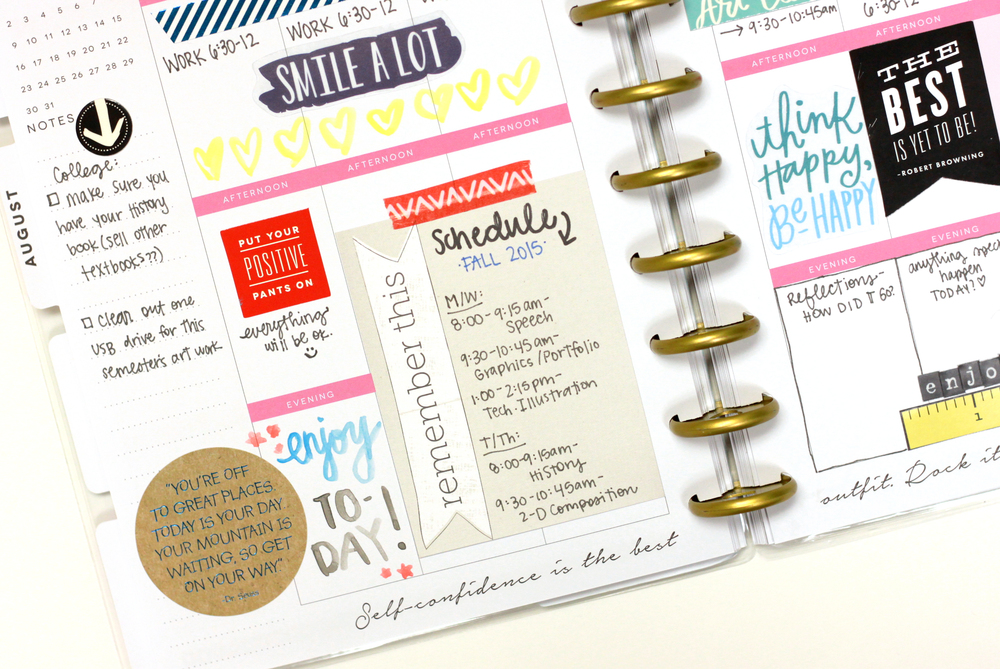 2 3 4 5 6 7 8
9 10 11 12 13 14 15
16 17 18 19 20 21 22
23 24 25 26 27 28 29
30 31
NOTES
AUGUST
College:
make sure you
have your History
book (sell other
textbooks??)
Clean out one
USB drive for this
semester's art work
"YOU'RE OFF
TO GREAT PLACES.
TODAY IS YOUR DAY.
YOUR MOUNTAIN IS
WAITING, SO GET
ON YOUR WAY."
-Dr. Seuss
WORK 6:30-12
WORK 6:30-12
SMILE A LOT
AFTERNOON
AFTERNOON
AFTERNOON
PUT YOUR
POSITIVE
PANTS ON
everything
will be ok.
EVENING
enjoy
TO-
DAY!
remember this
Schedule
FALL 2015
M/W:
8:00-9:15am-
Speech
9:30-10:45am-
Graphics/Portfolio
1:00-2:15pm-
Tech. Illustration
T/Th:
8:00-9:15am-
History
9:30-10:45am-
2-D Composition
Self-confidence is the best
→ 9:30-10:45am
6:30-12
AFTERNOON
AFTERNOON
think
Happy,
Be HAPPY
THE
BEST
IS YET TO BE!
-ROBERT BROWNING
EVENING
EVENING
Reflections-
HOW DID IT GO?
anything
happen
TODAY?
enjo
1
outfit. Rock it